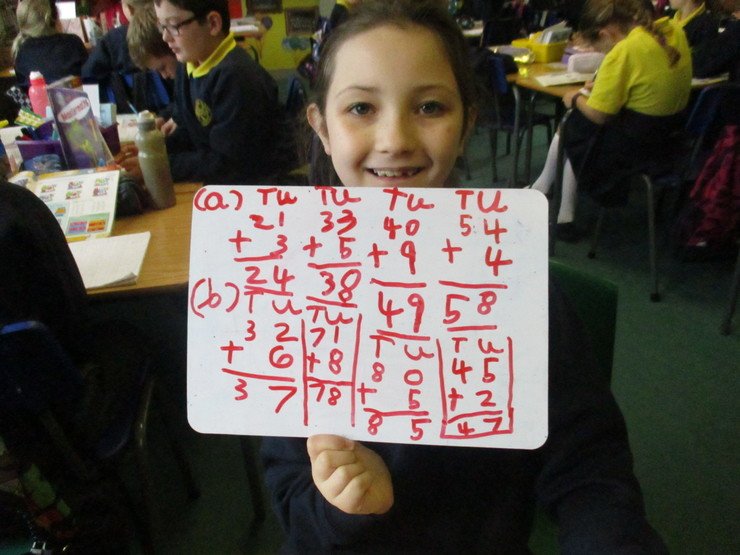 (a) TU TU TU TU
21 33 40 54
+ 3 + 5 + 9 + 4
24 38 49 58
(b) TU TU TU TU
32 71 80 45
+ 6 + 8 + 5 + 2
37 78 85 47